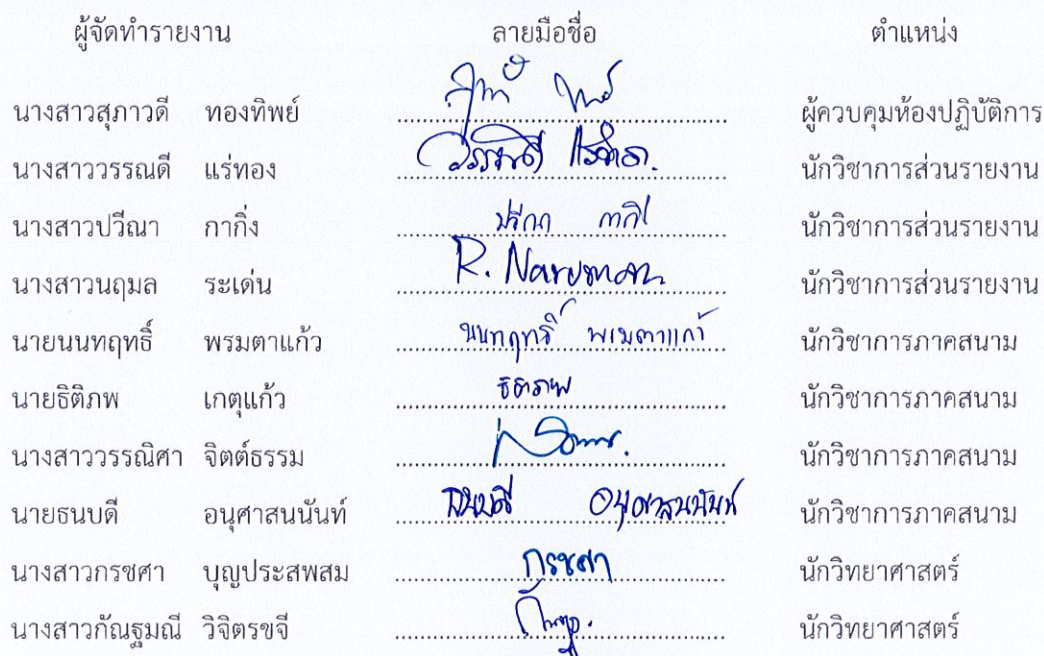 ผู้จัดทำรายงาน ลายมือชื่อ ตำแหน่ง
นางสาวสุภาวดี ทองทิพย์ ผู้ควบคุมห้องปฏิบัติการ
นางสาววรรณดี แร่ทอง วรรณดี แร่ทอง. นักวิชาการส่วนรายงาน
นางสาวปวีณา กากิ่ง ปวีณา กากิ่ง นักวิชาการส่วนรายงาน
นางสาวนฤมล ระเด่น R. Narumon นักวิชาการส่วนรายงาน
นายนนทฤทธิ์ พรมตาแก้ว นนทฤทธิ์ พรมตาแก้ว นักวิชาการภาคสนาม
นายธิติภพ เกตุแก้ว ธิติภพ นักวิชาการภาคสนาม
นางสาววรรณิศา จิตต์ธรรม นักวิชาการภาคสนาม
นายธนบดี อนุศาสนนันท์ ธนบดี อนุศาสนนันท์ นักวิชาการภาคสนาม
นางสาวกรชศา บุญประสพสม กรชศา นักวิทยาศาสตร์
นางสาวกัณฐมณี วิจิตรขจี นักวิทยาศาสตร์